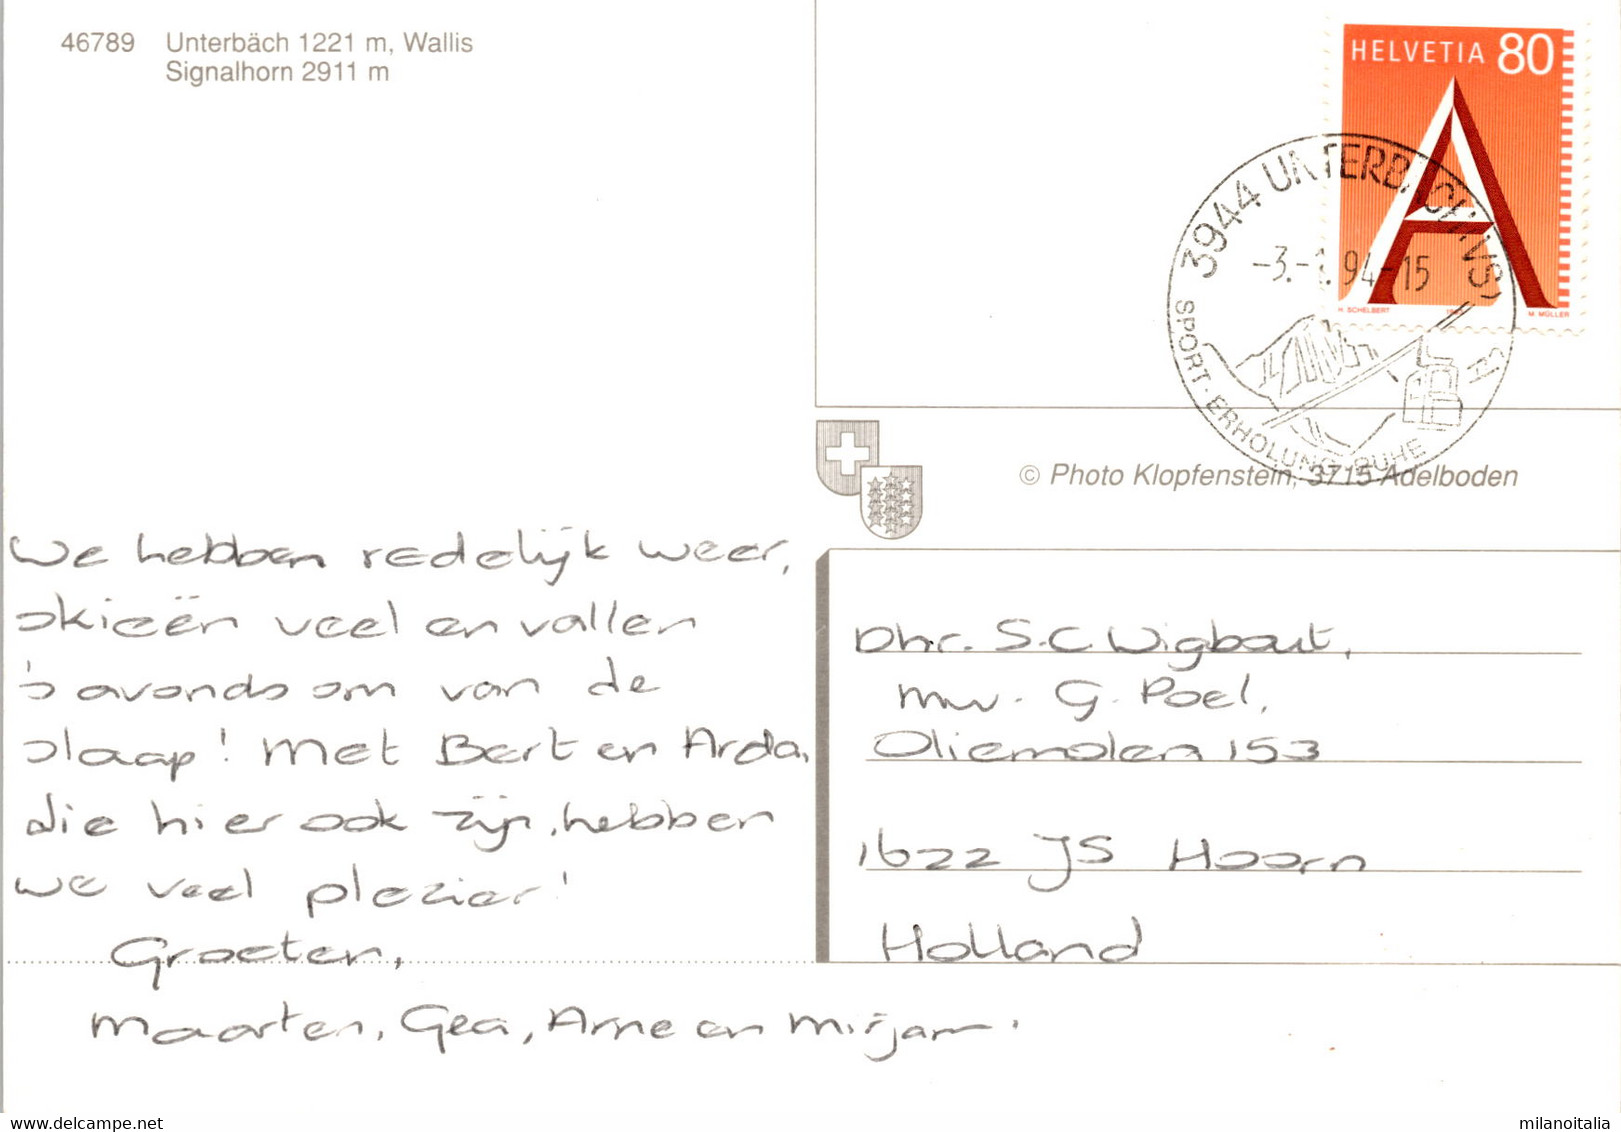 46789 Unterbäch 1221 m, Wallis
Signalhorn 2911 m
HELVETIA 80
H. SCHELBERT M. MÜLLER
3944 UNTERBÄCH (VS)
-3.-1.94-15
SPORT · ERHOLUNG · RUHE
© Photo Klopfenstein, 3715 Adelboden
We hebben redelijk weer,
skieën veel en vallen
's avonds om van de
slaap! Met Bert en Arda,
die hier ook zijn, hebben
we veel plezier!
Groeten,
Maarten, Gea, Arne en Mirjam.
Dhr. S.C. Wigbout,
mw. G. Poel,
Oliemolen 153
1622 JS Hoorn
Holland
delcampe.net
milanoitalia